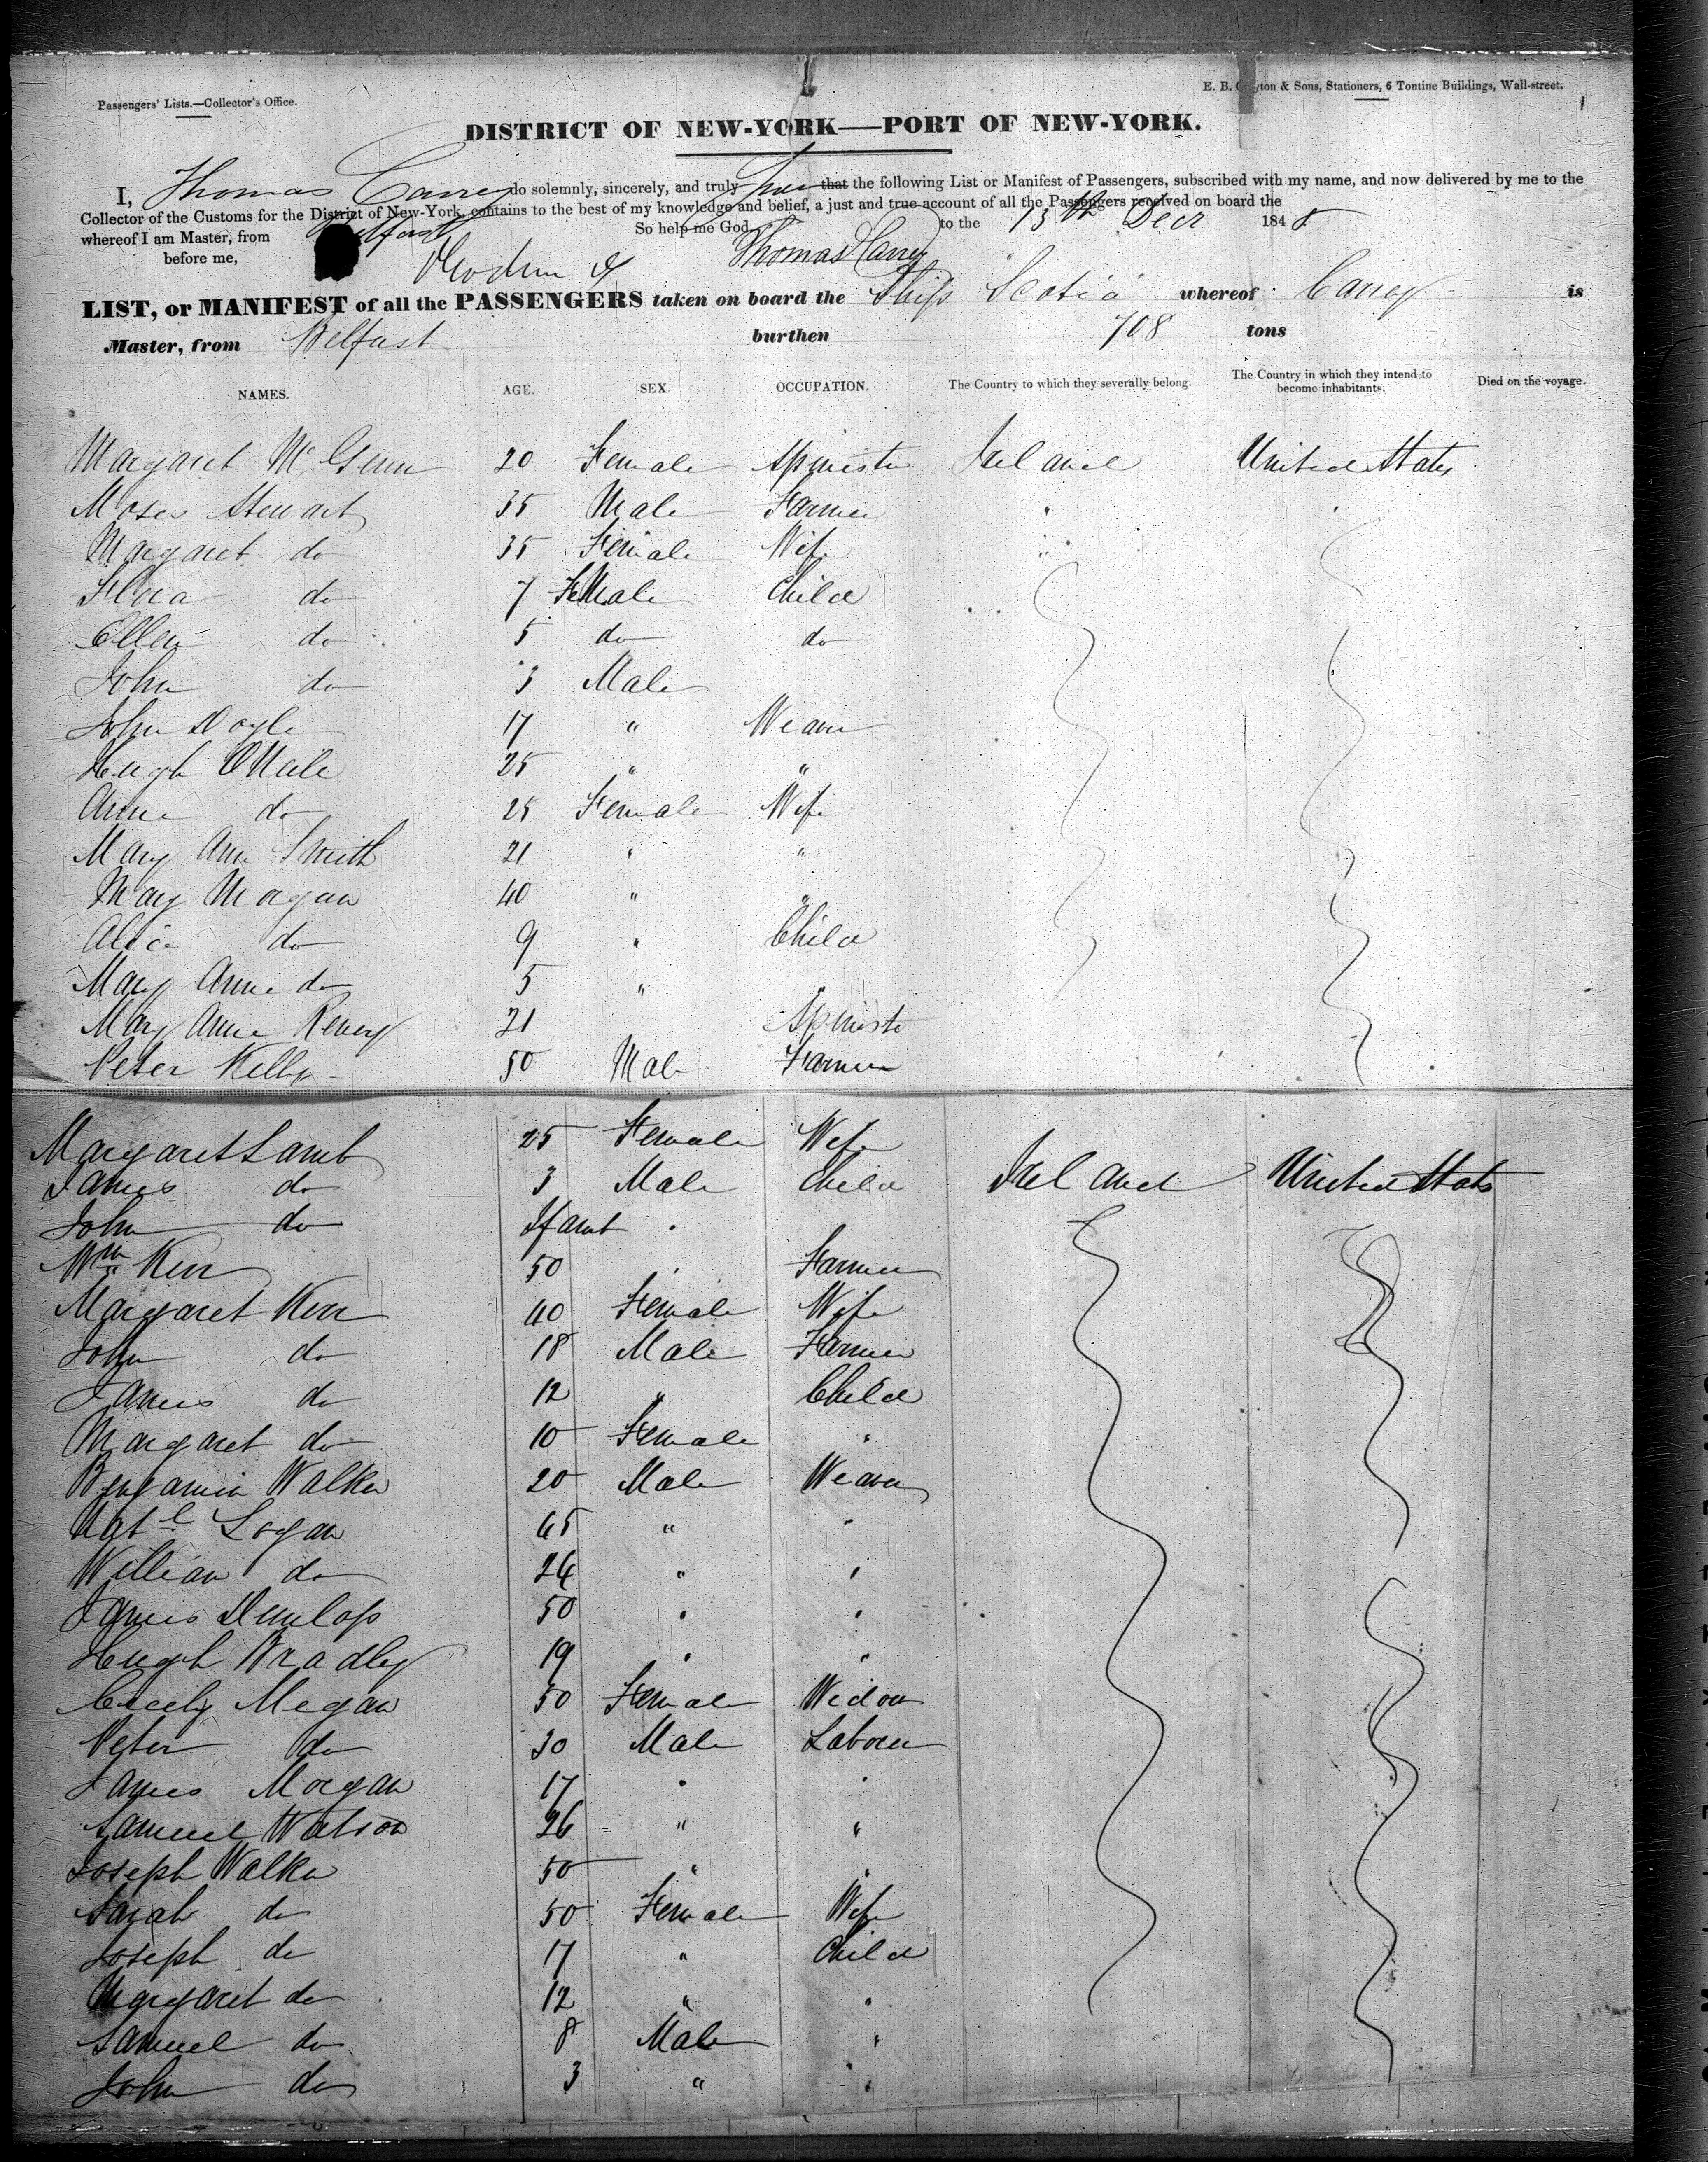 Passengers' Lists.—Collector's Office.
E. B. Clayton & Sons, Stationers, 6 Tontine Buildings, Wall-street.
DISTRICT OF NEW-YORK—PORT OF NEW-YORK.
I, Thomas Carrey do solemnly, sincerely, and truly that the following List or Manifest of Passengers, subscribed with my name, and now delivered by me to the
Collector of the Customs for the District of New-York, contains to the best of my knowledge and belief, a just and true account of all the Passengers received on board the
whereof I am Master, from Belfast So help me God. to the 13th Decr 1848
before me, Thomas Carrey
LIST, or MANIFEST of all the PASSENGERS taken on board the Ship Scotia whereof Carrey is
Master, from Belfast burthen 708 tons
NAMES. AGE. SEX. OCCUPATION. The Country to which they severally belong. The Country in which they intend to become inhabitants. Died on the voyage.
Margaret McGenn 20 Female Spinster Ireland United States
Moses Stewart 35 Male Farmer "
Margaret do 35 Female Wife "
Flora do 7 FeMale Child
Ellen do 5 do do
John do 3 Male
John Doyle 17 " Weaver
Hugh ONeile 25 " "
Anne do 25 Female Wife
Mary Ann Smith 21 " "
Mary Morgan 40 " "
Alice do 9 " Child
Mary Anne do 5 " "
Mary Anne Revery 21 Spinste
Peter Kelly 50 Male Farmer
Margaret Lamb 25 Female Wife
James do 3 Male Child Ireland United States
John do Ifant "
Wm Kerr 50 " Farmer
Margaret Kerr 40 Female Wife
John do 18 Male Farmer
James do 12 " Child
Margaret do 10 Female "
Benjamin Walker 20 Male Weaver
Natl Logan 65 " "
William do 26 " "
James Dunlop 50 " "
Hugh Bradley 19 " "
Cicely Megan 50 Female Widow
Peter do 30 Male Laborer
James Morgan 17 " "
Samuel Watson 26 " "
Joseph Walker 50 " "
Sarah do 50 Female Wife
Joseph do 17 " Child
Margaret do 12 " "
Samuel do 8 Male "
John do 3 " "